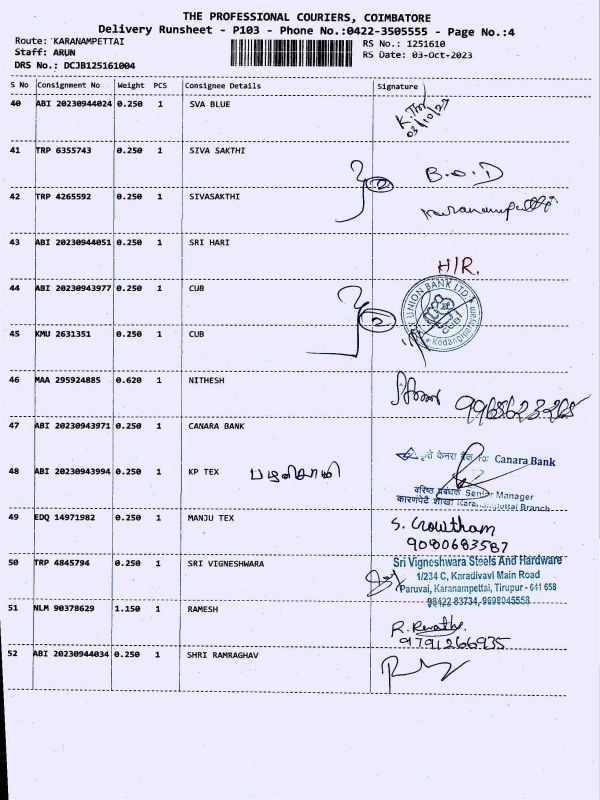 THE PROFESSIONAL COURIERS, COIMBATORE
Delivery Runsheet - P103 - Phone No.:0422-3505555 - Page No.:4
Route: KARANAMPETTAI
Staff: ARUN
DRS No.: DCJB125161004
RS No.: 1251610
RS Date: 03-Oct-2023
S No Consignment No Weight PCS Consignee Details Signature
40 ABI 20230944024 0.250 1 SVA BLUE
03/10/23
41 TRP 6355743 0.250 1 SIVA SAKTHI
B.O.D
42 TRP 4265592 0.250 1 SIVASAKTHI
2
43 ABI 20230944051 0.250 1 SRI HARI
H/R.
44 ABI 20230943977 0.250 1 CUB
2
UNION BANK LTD.
CUB
Kodangipalayam
45 KMU 2631351 0.250 1 CUB
46 MAA 295924885 0.620 1 NITHESH
47 ABI 20230943971 0.250 1 CANARA BANK
केनरा बैंक For Canara Bank
48 ABI 20230943994 0.250 1 KP TEX
வரிஷ்ட प्रबंधक Senior Manager
Branch
49 EDQ 14971982 0.250 1 MANJU TEX
S. Gowtham
9080683587
50 TRP 4845794 0.250 1 SRI VIGNESHWARA
Sri Vigneshwara Steels And Hardware
1/234 C, Karadivavi Main Road
Paruvai, Karanampettai, Tirupur - 641 658
98422 83734, 9698045558
51 NLM 90378629 1.150 1 RAMESH
R. Revathi
9791266935
52 ABI 20230944034 0.250 1 SHRI RAMRAGHAV